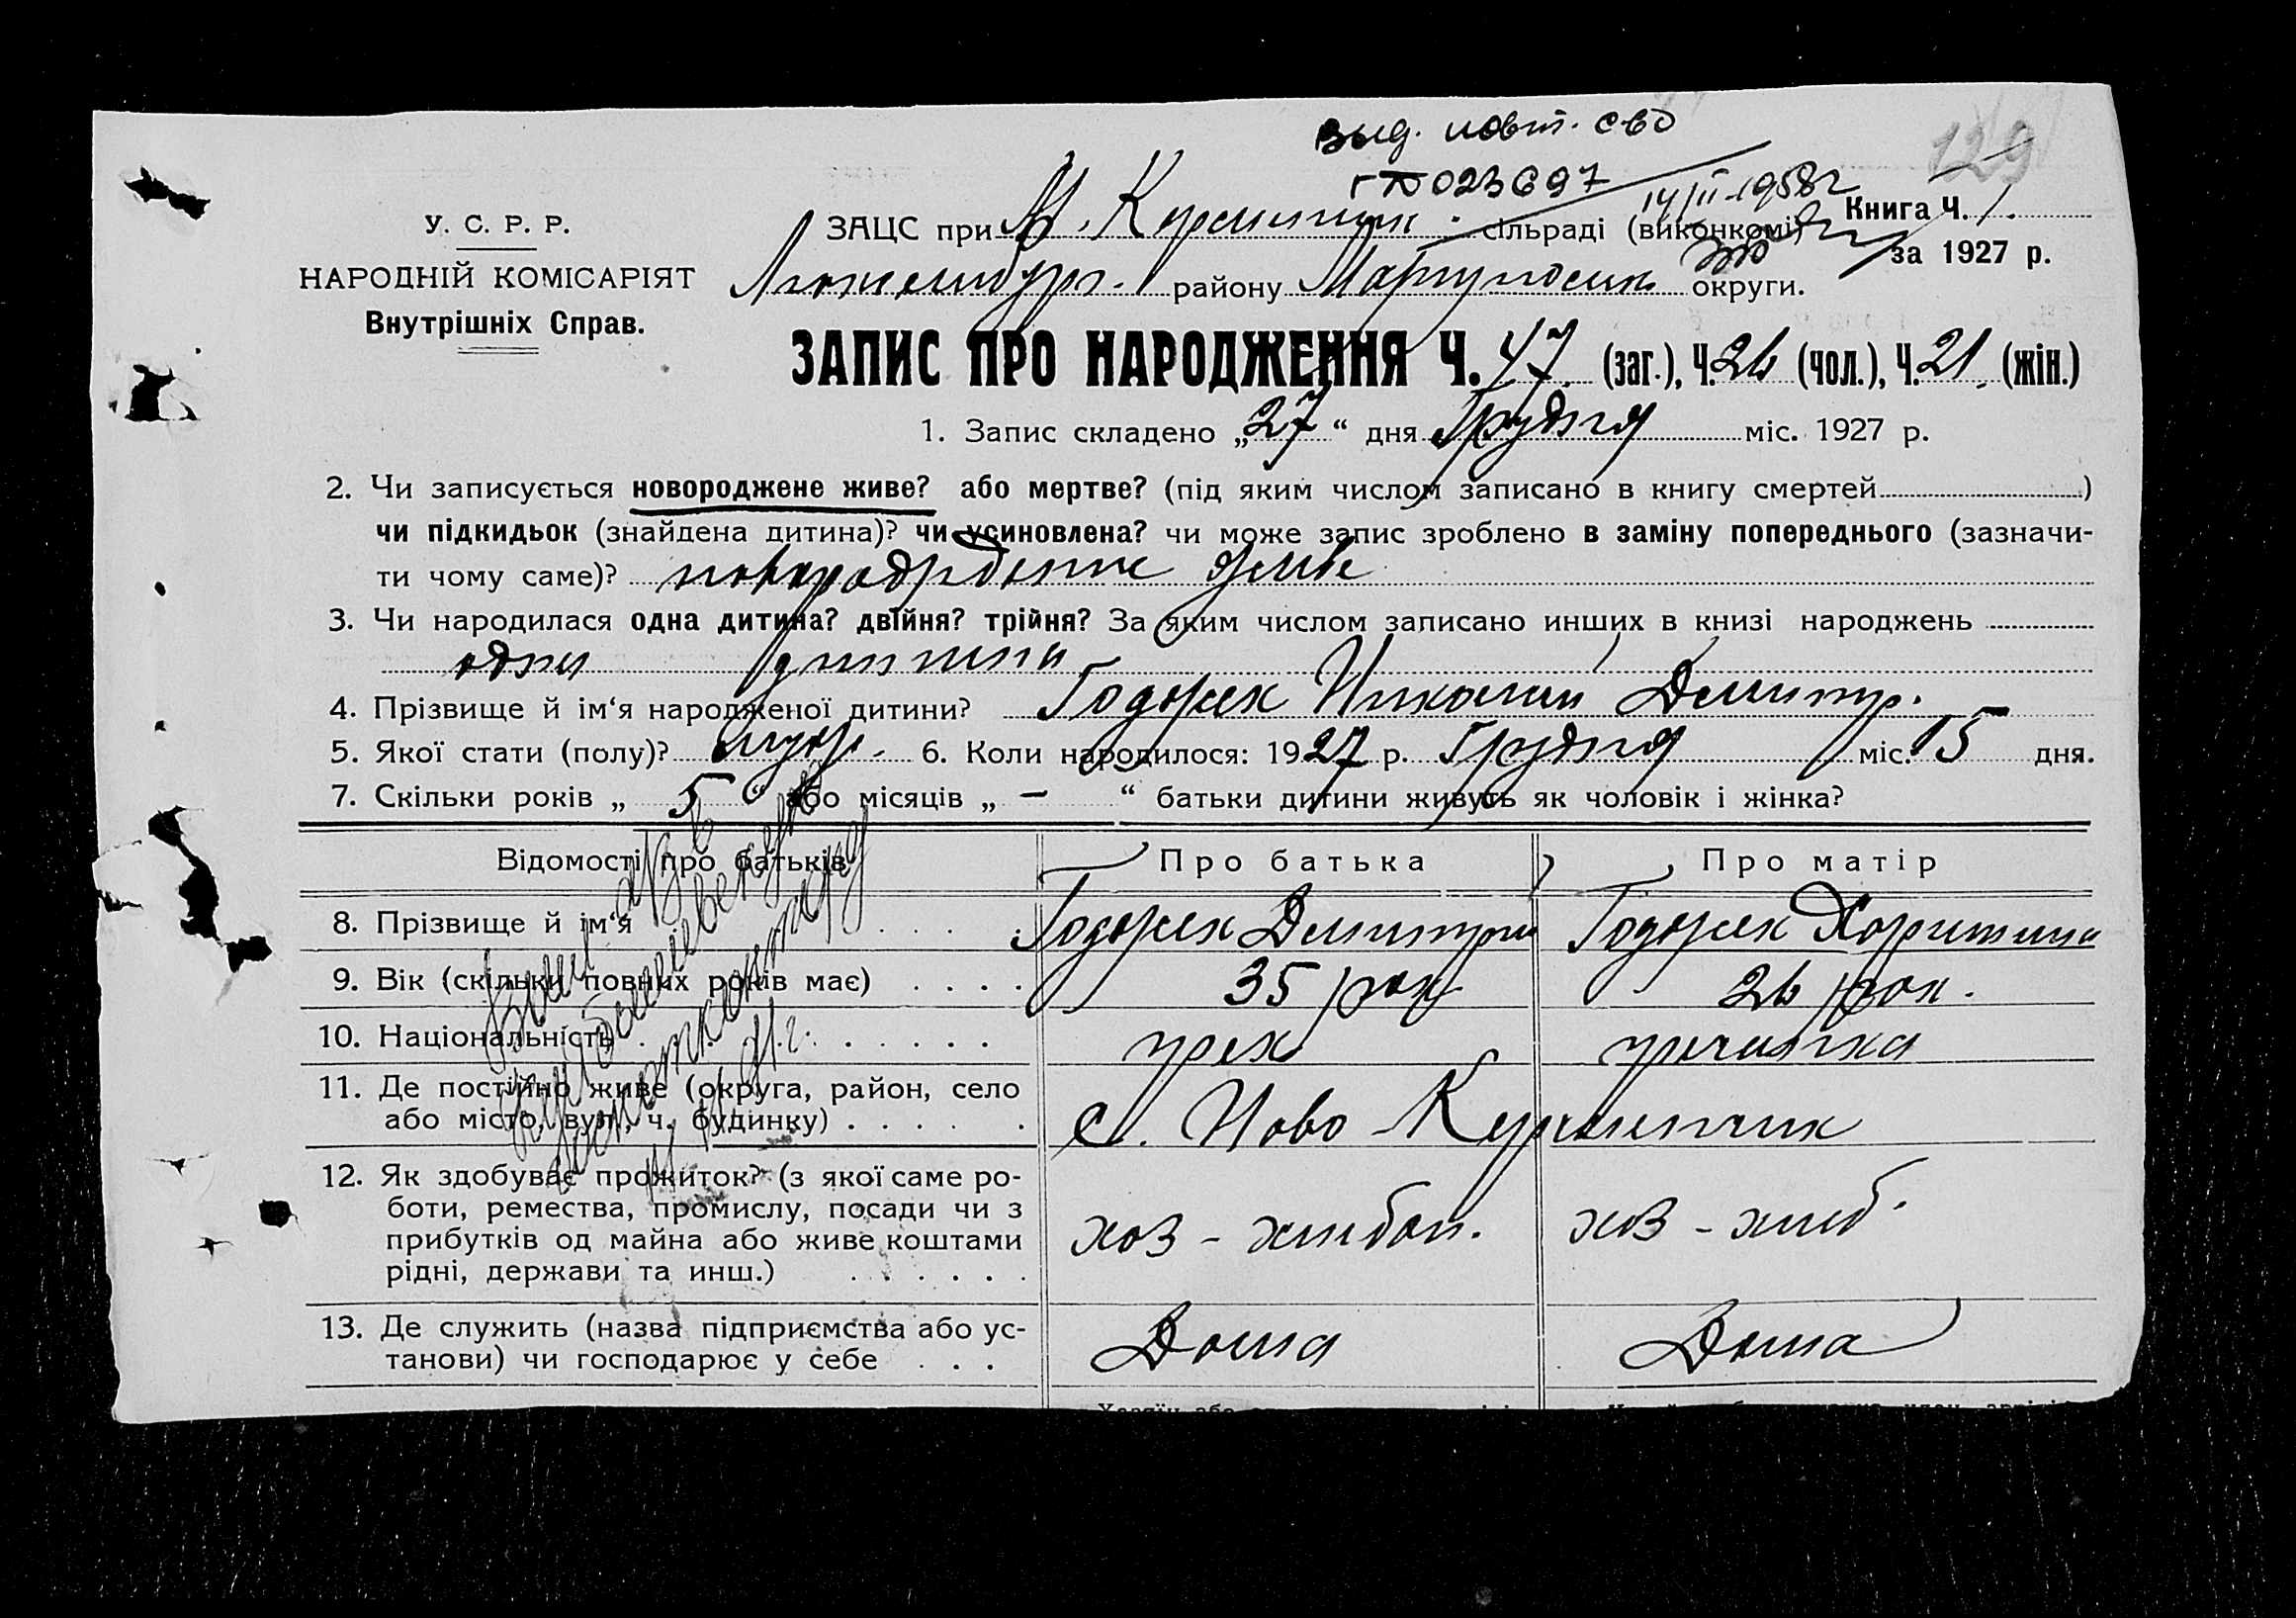 выд. повт. с-во
ГЮ 023697
14/II-1958г
129
У. С. Р. Р.
НАРОДНІЙ КОМІСАРІЯТ
Внутрішніх Справ.
ЗАЦС при Н. Керменчик сільраді (виконкомі) Книга Ч. 1.
району Маріупольск. округи. за 1927 р.
ЗАПИС ПРО НАРОДЖЕННЯ Ч. 47. (заг.), Ч. 26 (чол.), Ч. 21. (жін.)
1. Запис складено „27“ дня Грудня міс. 1927 р.
2. Чи записується новороджене живе? або мертве? (під яким числом записано в книгу смертей )
чи підкидьок (знайдена дитина)? чи усиновлена? чи може запис зроблено в заміну попереднього (зазначи-
ти чому саме)? живе
3. Чи народилася одна дитина? двійня? трійня? За яким числом записано инших в книзі народжень
одна дитина
4. Прізвище й ім‘я народженої дитини? Тодорех Николай Димитр.
5. Якої стати (полу)? муж. 6. Коли народилося: 1927 р. Грудня міс. 15 дня.
7. Скільки років „ 5 “ або місяців „ — “ батьки дитини живуть як чоловік і жінка?
Відомості про батьків Про батька Про матір
8. Прізвище й ім‘я . . . . Тодорех Димитрий Тодорех Харитина
9. Вік (скільки повних років має) . . . . 35 рок 26 рок.
10. Національність . . . . . . . . грек гречанка
11. Де постійно живе (округа, район, село
або місто, вул., ч. будинку) . . . . . . с. Ново-Керменчик
12. Як здобуває прожиток? (з якої саме ро-
боти, ремества, промислу, посади чи з
прибутків од майна або живе коштами
рідні, держави та инш.) . . . . . . хоз - хлібоп. хоз - хліб.
13. Де служить (назва підприємства або ус-
танови) чи господарює у себе . . . Дома Дома